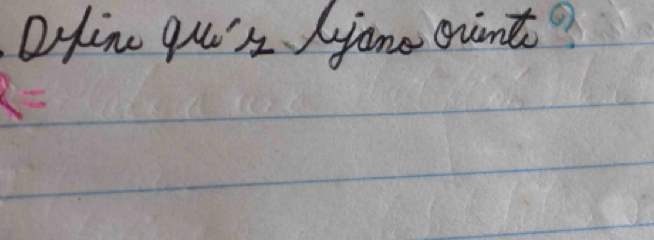 . Define qué es lejano oriente?
R=